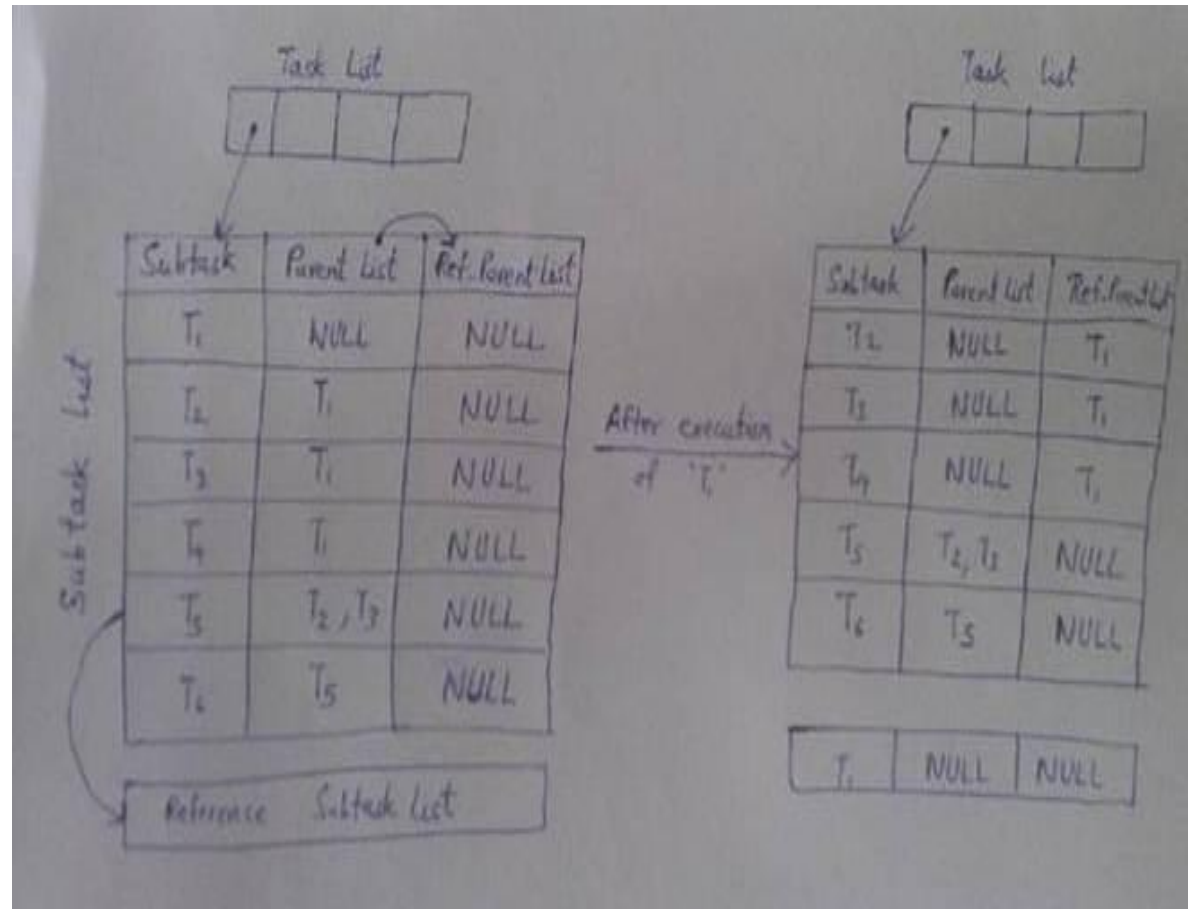 Task List
Subtask Parent List Ref. Parent List
T1 NULL NULL
T2 T1 NULL
T3 T1 NULL
T4 T1 NULL
T5 T2, T3 NULL
T6 T5 NULL
Subtask List
Reference Subtask List
After execution
of 'T1'
Task List
Subtask Parent List Ref. Parent List
T2 NULL T1
T3 NULL T1
T4 NULL T1
T5 T2, T3 NULL
T6 T5 NULL
T1 NULL NULL